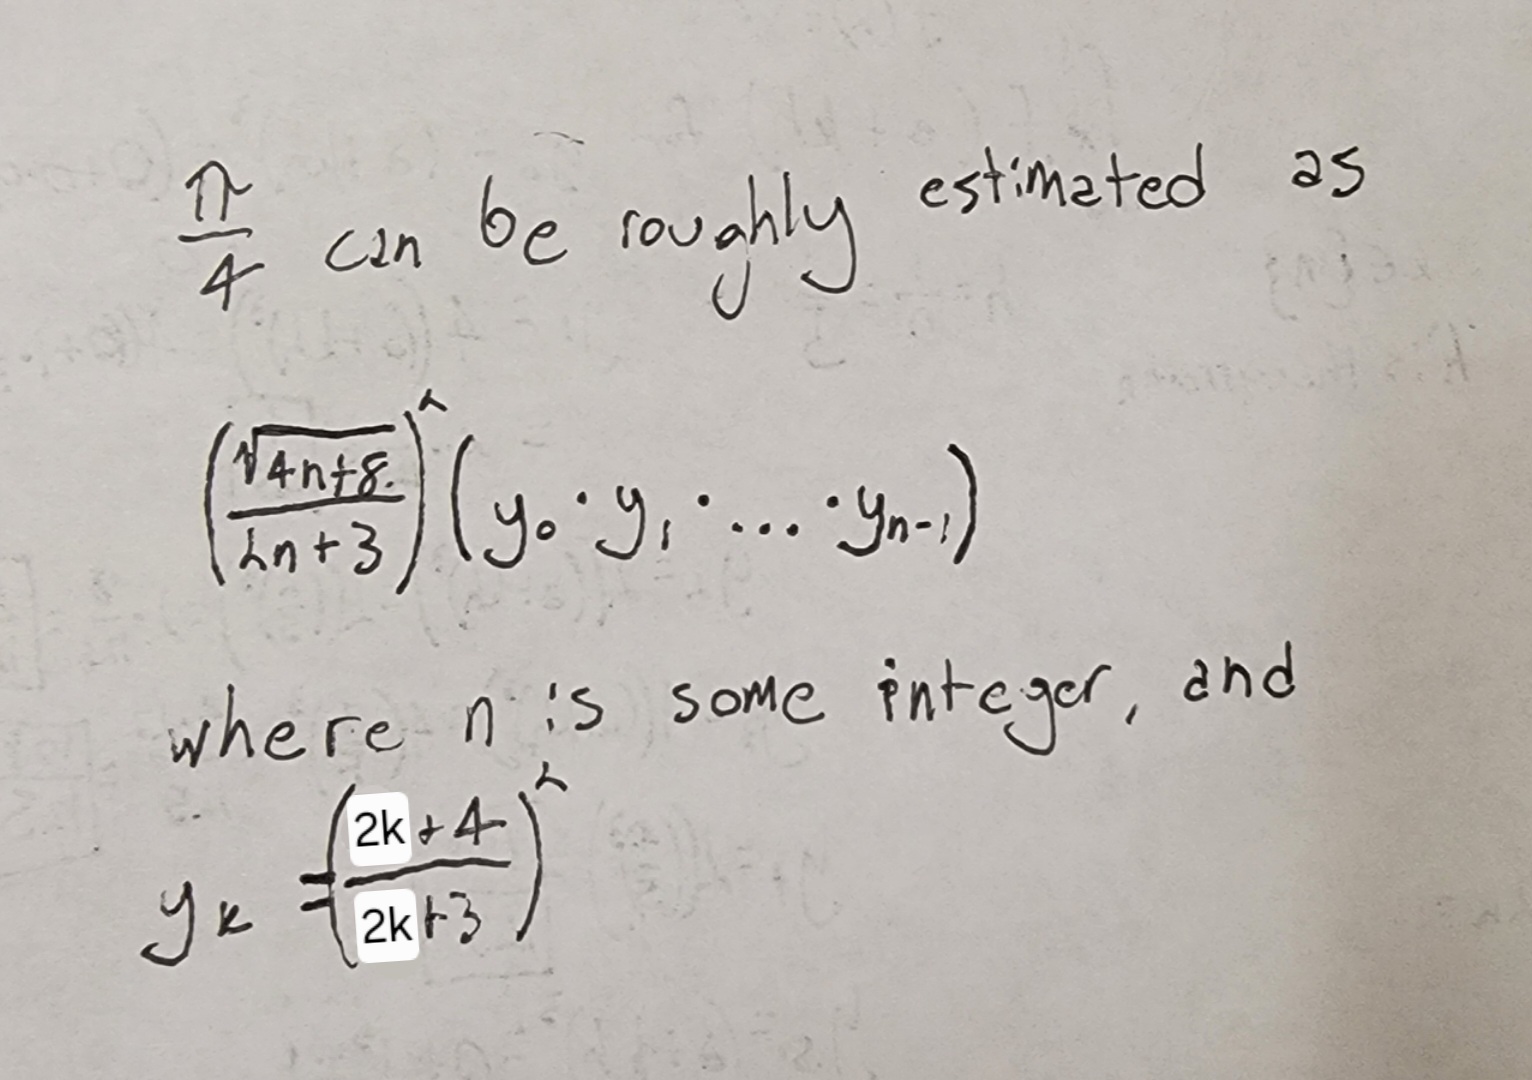 π/4 can be roughly estimated as
(√(4n+8)/(2n+3))² (y₀ · y₁ · ... · yₙ₋₁)
where n is some integer, and
yₖ = ((2k+4)/(2k+3))²